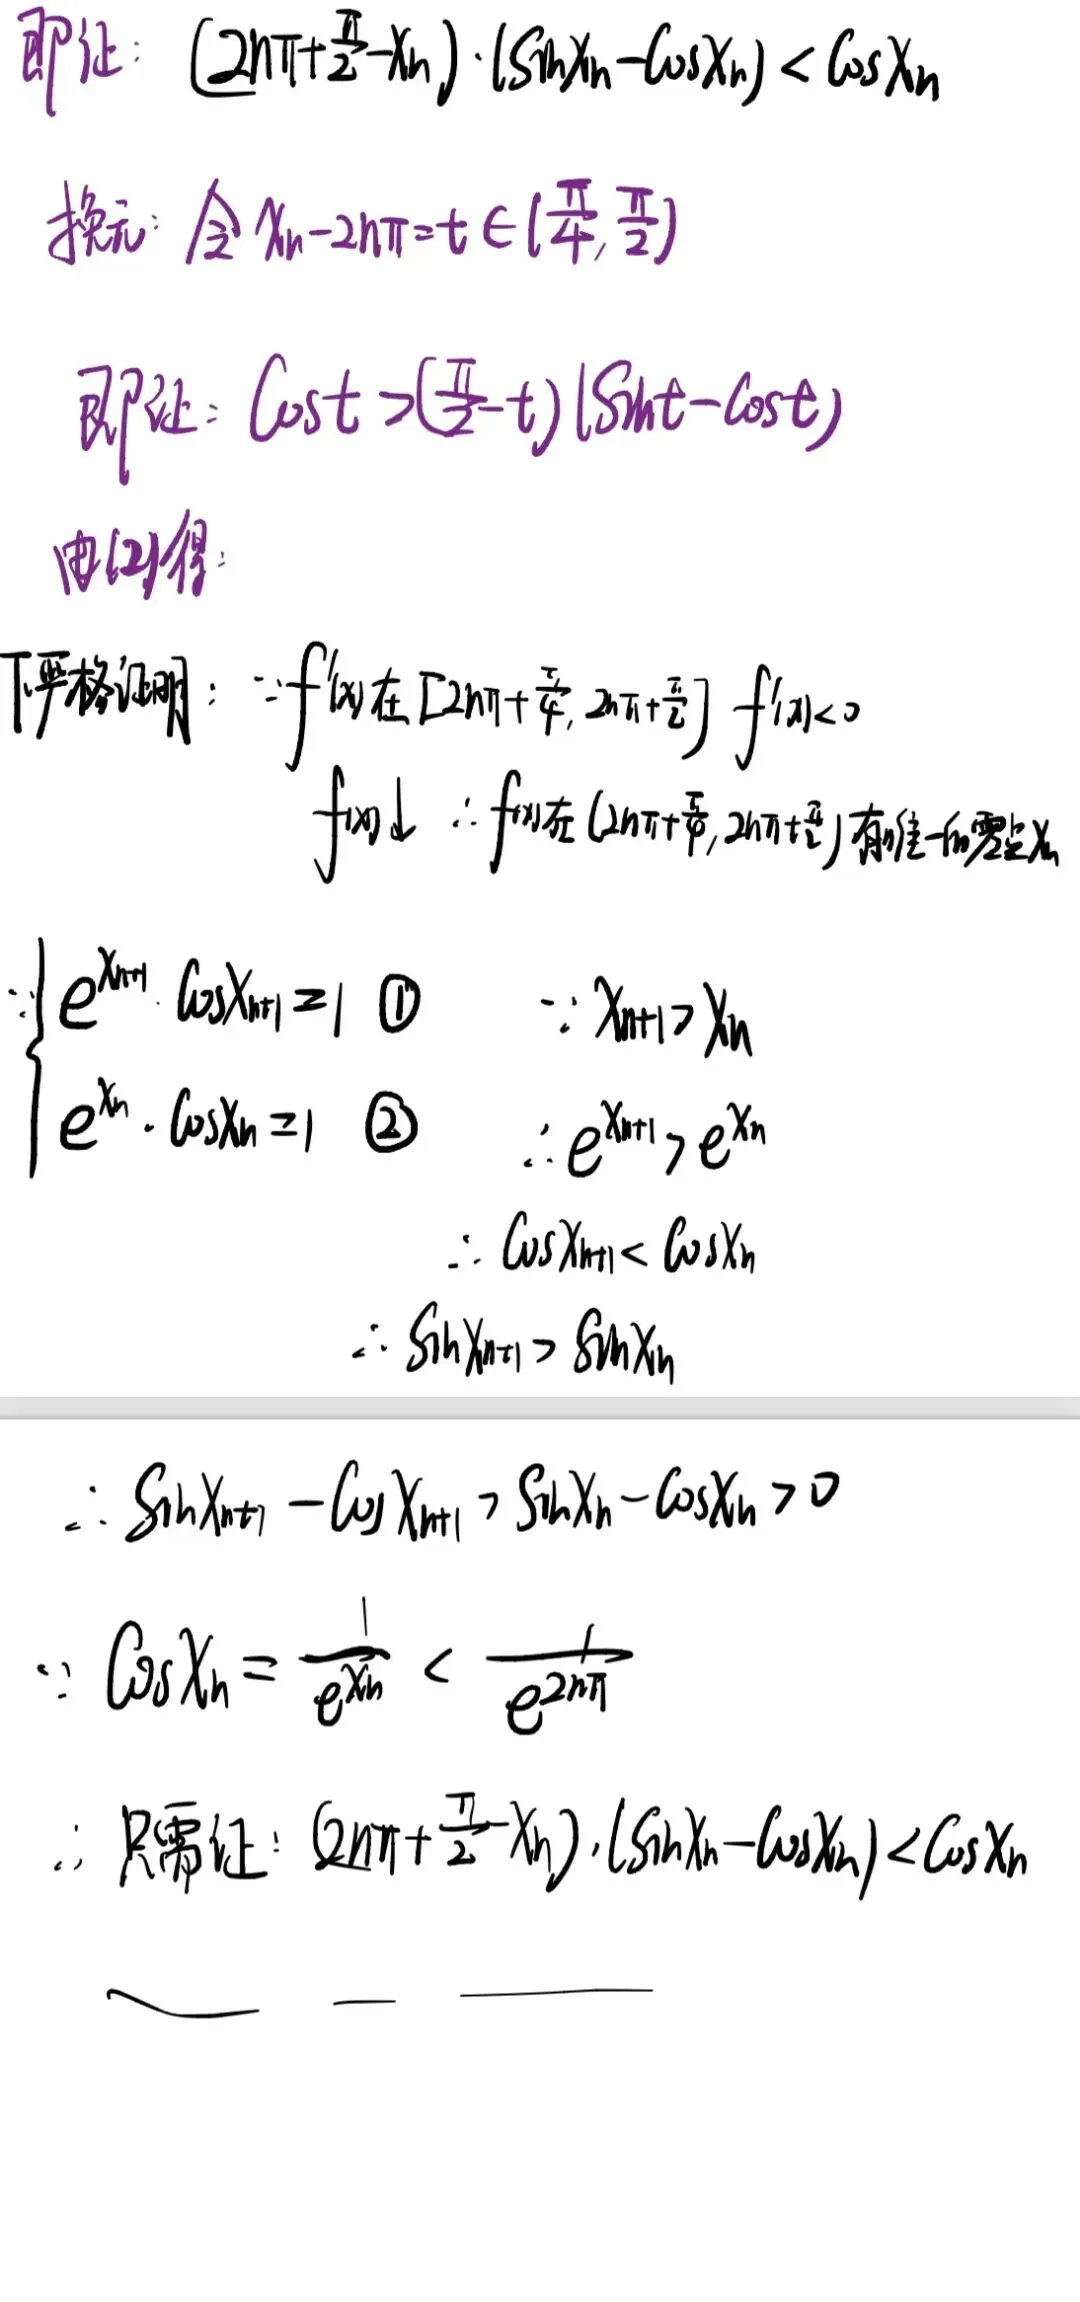 即证: (2nπ+π/2-xₙ)·(sinxₙ-cosxₙ)<cosxₙ
换元: 令xₙ-2nπ=t∈(π/4,π/2)
即证: cost>(π/2-t)(sint-cost)
由(2)得:
下严格证明: ∵f'(x)在[2nπ+π/4,2nπ+π/2] f'(x)<0
f(x)↓ ∴f(x)在(2nπ+π/4,2nπ+π/2)有唯一的零点xₙ
∵{ e^(xₙ₊₁)·cosxₙ₊₁=1 ① ∵xₙ₊₁>xₙ
e^(xₙ)·cosxₙ=1 ② ∴e^(xₙ₊₁)>e^(xₙ)
∴cosxₙ₊₁<cosxₙ
∴sinxₙ₊₁>sinxₙ
∴sinxₙ₊₁-cosxₙ₊₁>sinxₙ-cosxₙ>0
∵cosxₙ=1/e^(xₙ)<1/e^(2nπ)
∴只需证: (2nπ+π/2-xₙ)·(sinxₙ-cosxₙ)<cosxₙ